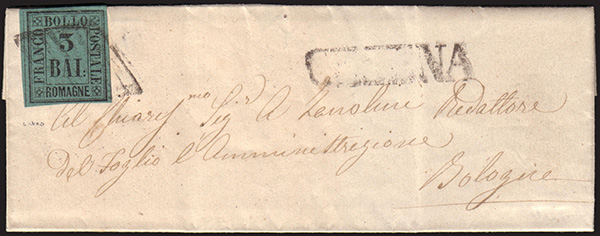 FRANCO BOLLO POSTALE
3
BAI.
ROMAGNE
CESENA
Al Chiaris.mo Sig.r A Zanolini Redattore
Del Foglio l'Amministrazione
Bologna